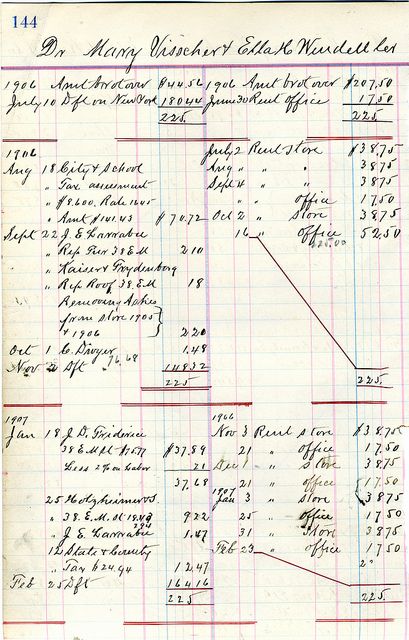 144
Dr Mary Visscher & Ella H Wendell Cr
1906 Amt brot over $44.56 1906 Amt brot over $207.50
July 10 Dft on New York 180.44 June 30 Rent office 17.50
225. 225.
1906 July 2 Rent Store $38.75
Aug 18 City & School Aug " " " 38.75
" Tax assessment Sept 4 " " 38.75
" $8.600. Rate 1645 " " office 17.50
" Amt $141.43 $70.72 Oct 2 " Store 38.75
Sept 22 J E Larrabee 16 " office 52.50
" Rep Fur 38 E M 2.10 225.00
" Kaiser & Freydenborg
" Rep Roof 38 E M 18
Removing Ashes
from store 1905
& 1906 2.20
Oct 1 C. Dwyer 1.48
Nov 2 Dft 76.68 148.32
225 225.
1907 1906
Jan 18 J D. Friderice Nov 3 Rent store $38.75
38 E M $37.89 21 " office 17.50
Less 2% on Labor 21 Dec 1 " Store 38.75
37.68 21 " office 17.50
1907
25 Holzheimer & S Jan 3 " Store 38.75
" 38. E. M. 9.22 25 " office 17.50
" J. E. Larrabee 1.47 31 " Store 38.75
12 State & County Feb 23 " office 17.50
" Tax $24.94 12.47 2"
Feb 25 Dft 164.16
225 225.